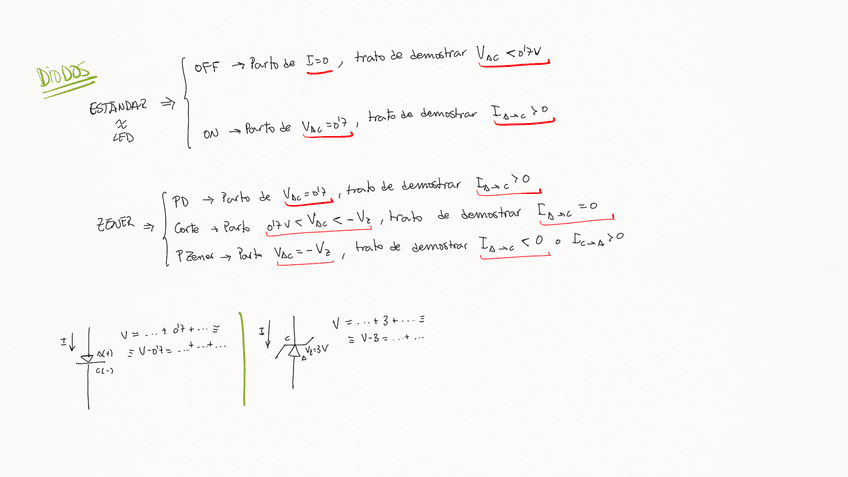 DIODOS
OFF → Parto de I=0, trato de demostrar V_AC < 0'7V
ESTÁNDAR ⇒
≈
LED
ON → Parto de V_AC=0'7, trato de demostrar I_A→C > 0
PD → Parto de V_AC=0'7, trato de demostrar I_A→C > 0
ZENER ⇒
Corte → Parto 0'7V < V_AC < -V_Z, trato de demostrar I_A→C = 0
PZener → Parto V_AC = -V_Z, trato de demostrar I_A→C < 0 o I_C→A > 0
I
V = ... + 0'7 + ... ≡
≡ V-0'7 = ...+...+...
A(+)
C(-)
I
C
A
V_Z=3V
V = ... + 3 + .... ≡
≡ V-3 = ...+...